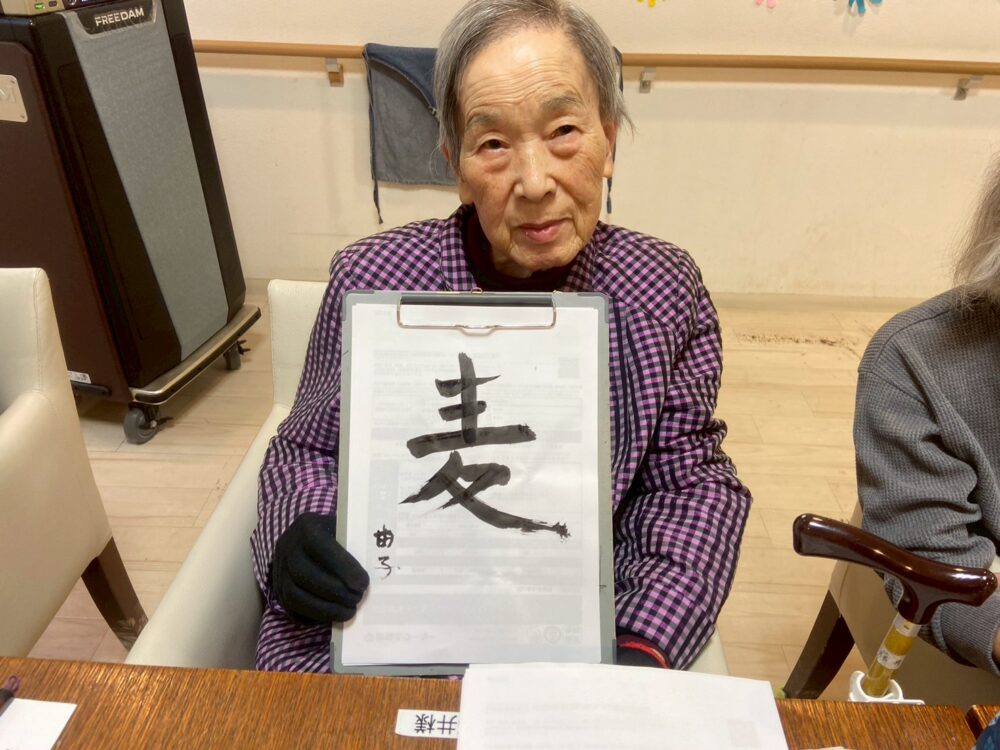 FREEDAM
麦
由子
井様